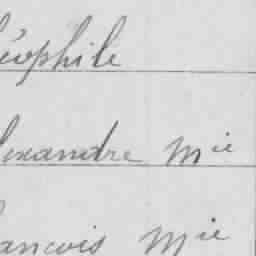 éophile
lexandre Mie
ancois Mie